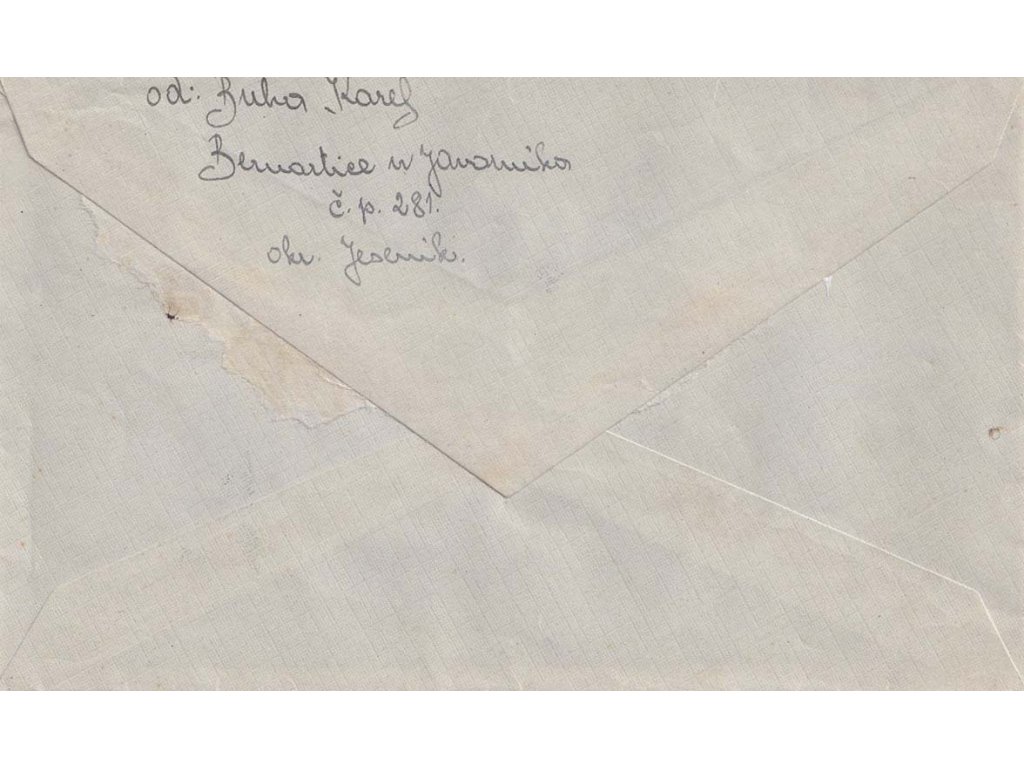 od: Buka Karel
Bernartice u Javorníka
č. p. 281.
okr. Jeseník.